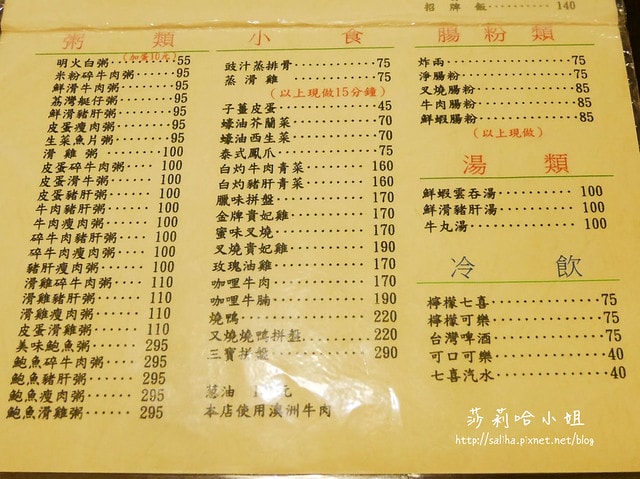 招牌飯 140
粥類
明火白粥 (加蛋10元) 55
米粉碎牛肉粥 95
鮮滑牛肉粥 95
荔灣艇仔粥 95
鮮滑豬肝粥 95
皮蛋瘦肉粥 95
生菜魚片粥 95
滑雞粥 100
皮蛋碎牛肉粥 100
皮蛋滑牛粥 100
皮蛋豬肝粥 100
牛肉豬肝粥 100
牛肉瘦肉粥 100
碎牛肉豬肝粥 100
碎牛肉瘦肉粥 100
豬肝瘦肉粥 100
滑雞碎牛肉粥 110
滑雞豬肝粥 110
滑雞瘦肉粥 110
皮蛋滑雞粥 110
美味鮑魚粥 295
鮑魚碎牛肉粥 295
鮑魚豬肝粥 295
鮑魚瘦肉粥 295
鮑魚滑雞粥 295
小食
豉汁蒸排骨 75
蒸滑雞 75
(以上現做15分鐘)
子薑皮蛋 45
蠔油芥蘭菜 70
蠔油西生菜 70
泰式鳳爪 75
白灼牛肉青菜 160
白灼豬肝青菜 160
臘味拼盤 170
金牌貴妃雞 170
蜜味叉燒 170
叉燒貴妃雞 190
玫瑰油雞 170
咖哩牛肉 170
咖哩牛腩 190
燒鴨 220
叉燒燒鴨拼盤 220
三寶拼盤 290
蔥油 元
本店使用澳洲牛肉
腸粉類
炸兩 75
淨腸粉 75
叉燒腸粉 85
牛肉腸粉 85
鮮蝦腸粉 85
(以上現做)
湯類
鮮蝦雲吞湯 100
鮮滑豬肝湯 100
牛丸湯 100
冷飲
檸檬七喜 75
檸檬可樂 75
台灣啤酒 75
可口可樂 40
七喜汽水 40
莎莉哈小姐
http://saliha.pixnet.net/blog